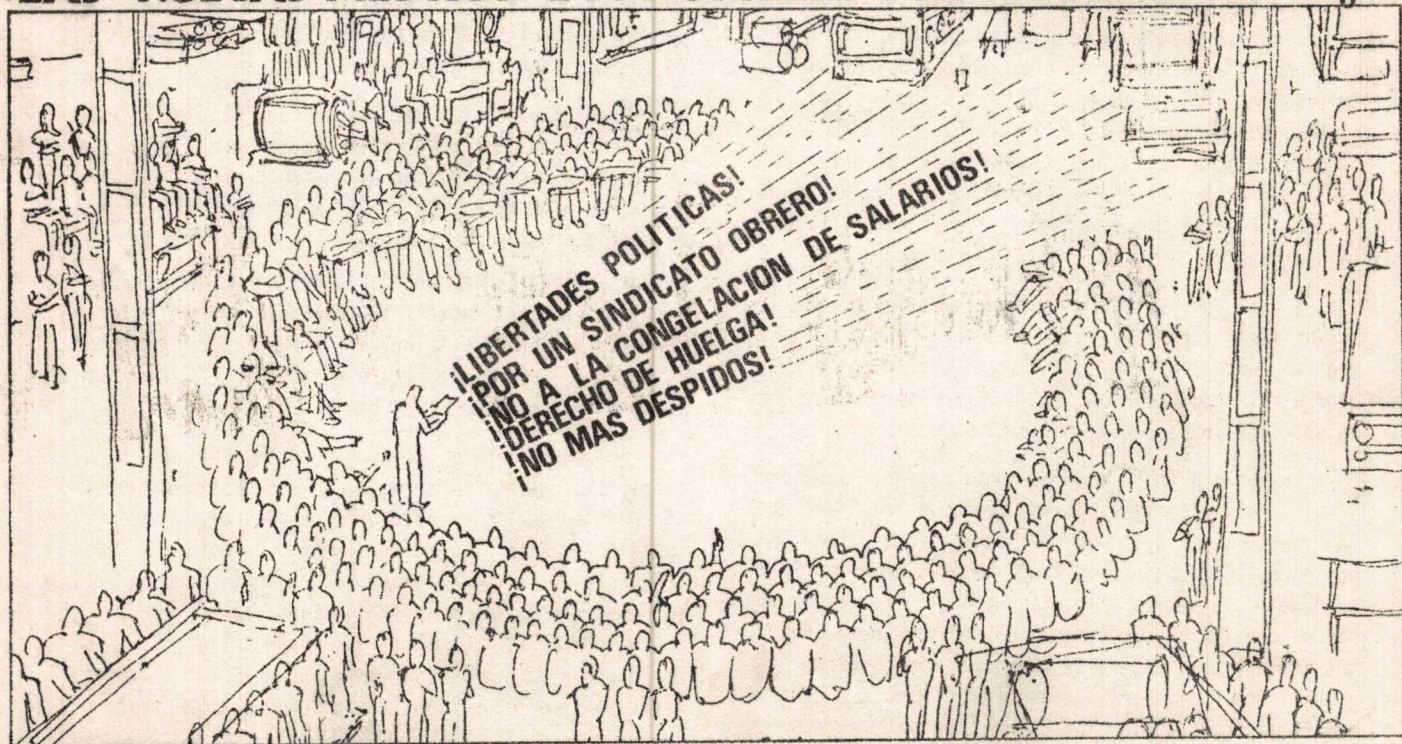 ¡LIBERTADES POLITICAS!
¡POR UN SINDICATO OBRERO!
¡NO A LA CONGELACION DE SALARIOS!
¡DERECHO DE HUELGA!
¡NO MAS DESPIDOS!